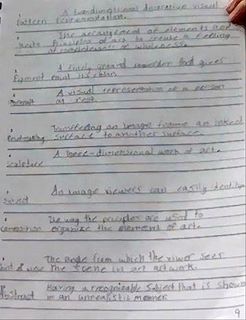 A two-dimensional decorative visual
pattern
The arrangement of elements and
principles of art to create a feeling
of completeness or wholeness.
A finely ground powder that gives
pigment
A visual representation of a person
at rest.
Transferring an image from an inked
surface to another surface.
sculpture A three-dimensional work of art.
An image viewers can easily identify
The way the principles are used to
organize the elements of art.
The angle from which the viewer sees
the scene in art work.
Abstract Having a recognizable subject that is shown
in an unrealistic manner.
9